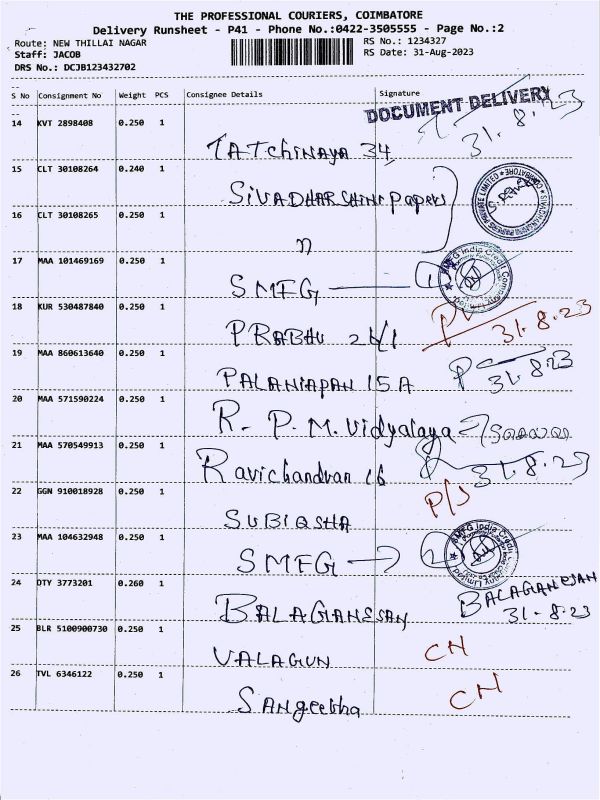 THE PROFESSIONAL COURIERS, COIMBATORE
Delivery Runsheet - P41 - Phone No.:0422-3505555 - Page No.:2
Route: NEW THILLAI NAGAR RS No.: 1234327
Staff: JACOB RS Date: 31-Aug-2023
DRS No.: DCJB123432702
S No Consignment No Weight PCS Consignee Details Signature
DOCUMENT DELIVERY
14 KVT 2898408 0.250 1
31.8.23
TATChiNAYA 34
15 CLT 30108264 0.240 1
SiVADHARShini papers
16 CLT 30108265 0.250 1
n
17 MAA 101469169 0.250 1
SMFG 1
18 KUR 530487840 0.250 1
31.8.23
PRABHU 26/1
19 MAA 860613640 0.250 1
31.8.23
PALANIAPAN 15 A
20 MAA 571590224 0.250 1
R. P. M. Vidyalaya
21 MAA 570549913 0.250 1
31.8.23
Ravichandran 16
22 GGN 910018928 0.250 1
P/S
SUBIQSHA
23 MAA 104632948 0.250 1
SMFG 2
24 OTY 3773201 0.260 1
BALAGANESAN
31.8.23
BALAGANESAN
25 BLR 5100900730 0.250 1
CN
VALAGUN
26 TVL 6346122 0.250 1
CN
SANgeetha